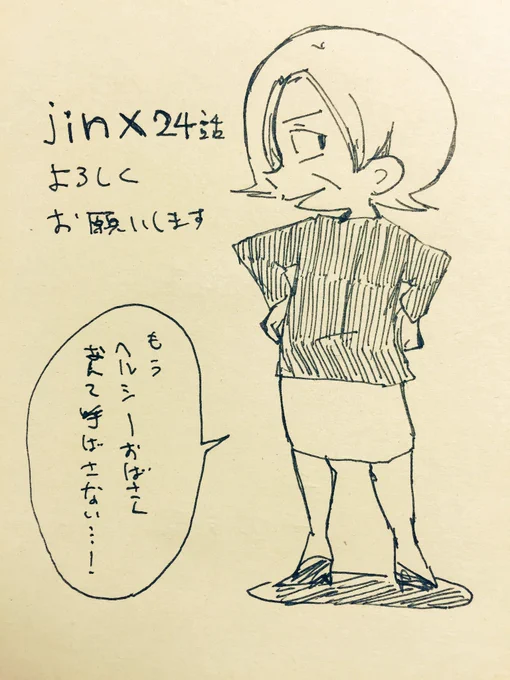 jinx24話
よろしく
お願いします
もう
ヘルシーおばさん
なんて呼ばさない…!